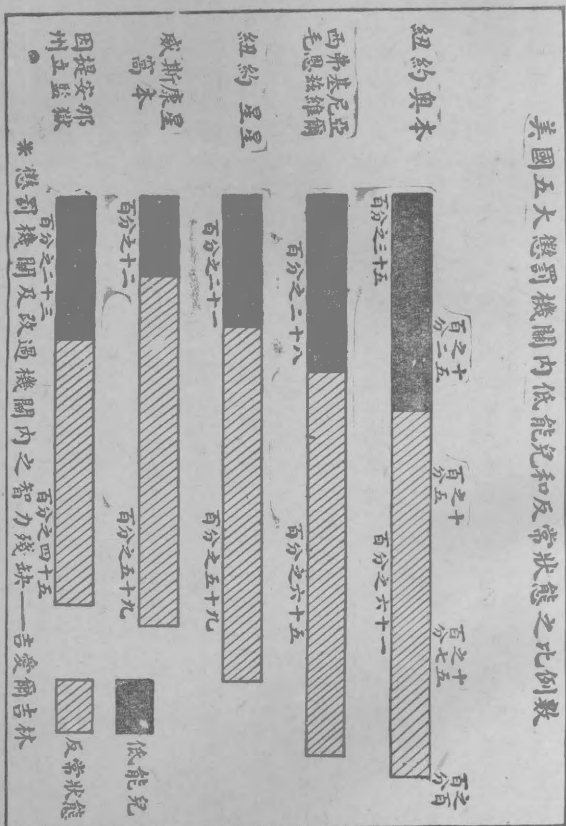 美國五大懲罰機關內低能兒和反常狀態之比例數
百分之二十五
百分之五十
百分之七十五
百分之百
紐約奧本
百分之三十五
百分之六十一
西弗基尼亞
毛恩茲維爾
百分之二十八
百分之六十五
紐約星星
百分之二十一
百分之五十九
威斯康星
窩本
百分之十二
百分之五十九
因提安那
州立監獄
百分之二十三
百分之四十五
低能兒
反常狀態
※懲罰機關及改過機關內之智力殘缺——吉愛爾吉林